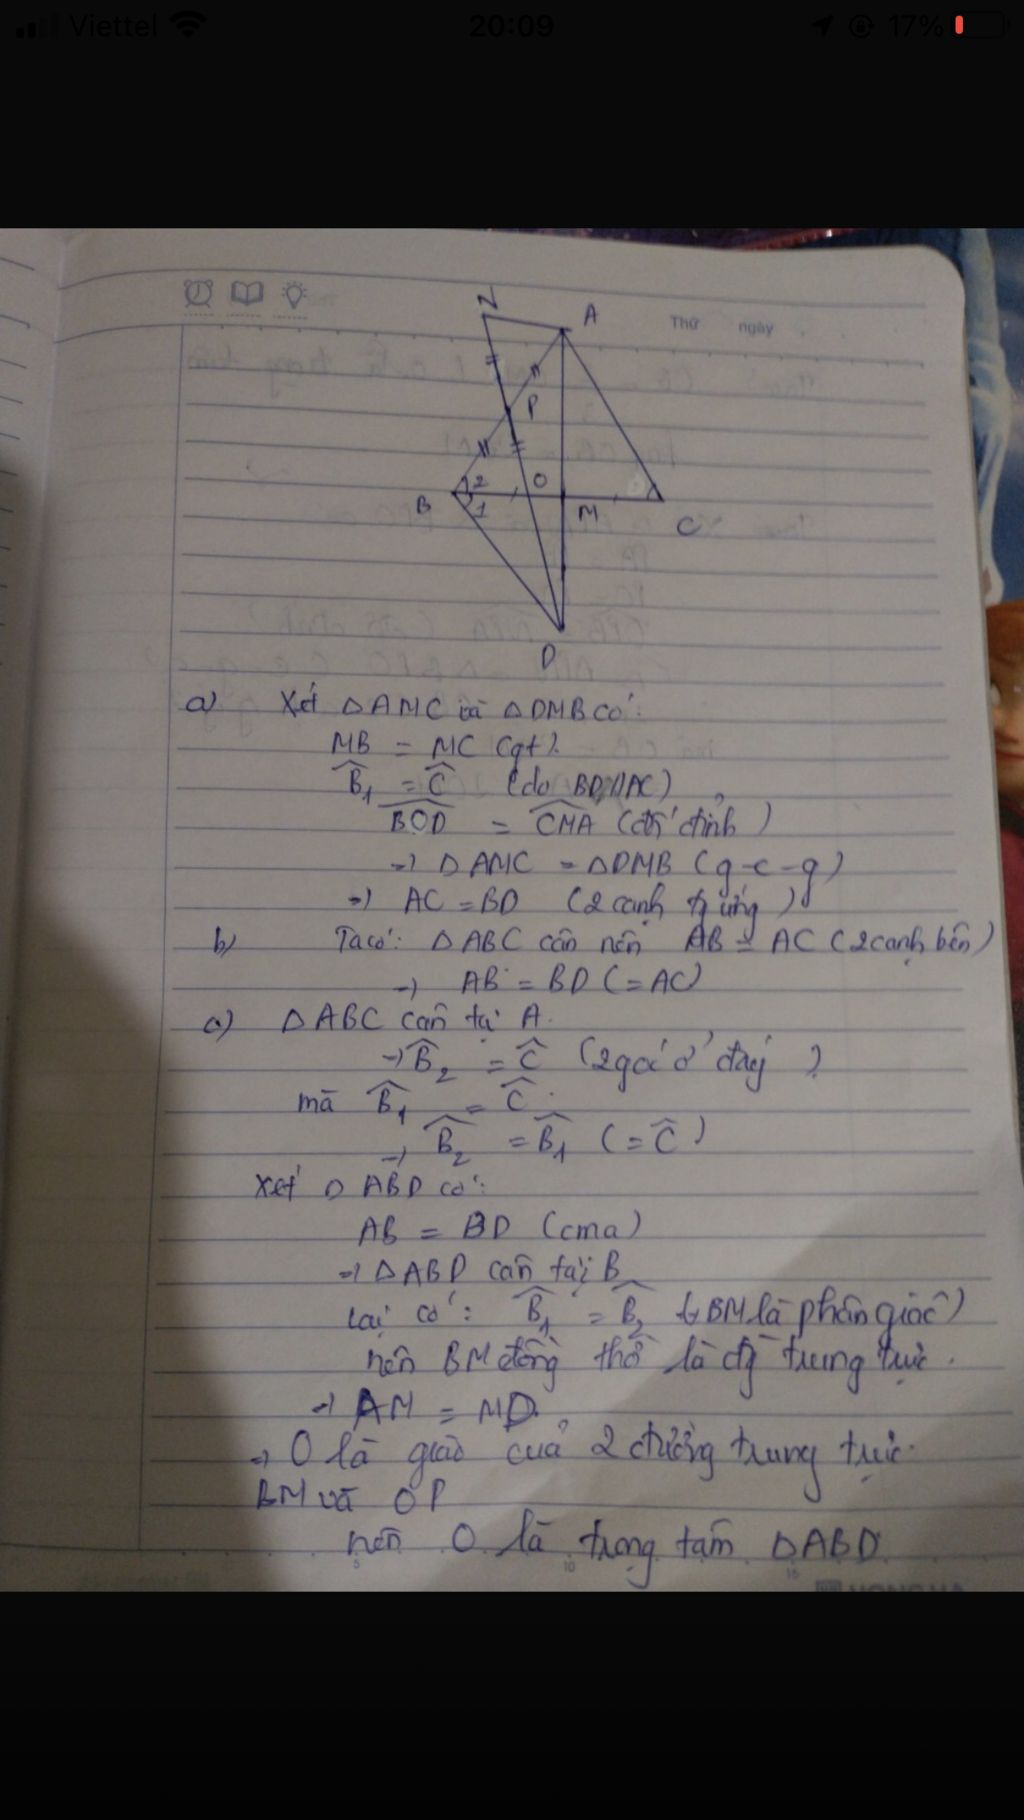 Viettel 20:09 17%
Thứ ngày
N
A
P
2
O
B
1
M
C
D
a) Xét ΔAMC và ΔDMB có:
MB = MC (gt).
B̂₁ = Ĉ (do BD//AC)
BOD = CMA (đối đỉnh)
=> ΔAMC = ΔDMB (g-c-g)
=> AC = BD (2 cạnh tg ứng)
b) Ta có: ΔABC cân nên AB = AC (2 cạnh bên)
=> AB = BD (=AC)
a) ΔABC cân tại A.
=> B̂₂ = Ĉ (2 góc ở đáy)
mà B̂₁ = Ĉ.
=> B̂₂ = B̂₁ (= Ĉ)
Xét ΔABD có:
AB = BD (cma)
=> ΔABD cân tại B
Lại có: B̂₁ = B̂₂ BM là phân giác)
nên BM đồng thời là đg trung trực.
=> AM = MD.
=> O là giao của 2 đường trung trực.
BM và OP
nên O là trọng tâm ΔABD
5 10 15